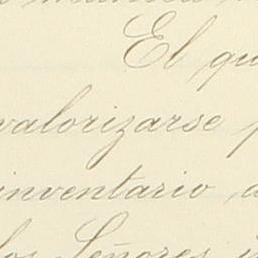 El qu
valorizarse
inventario
los Señores